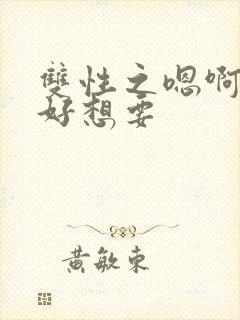 雙性之嗯啊
好想要
黃敏東